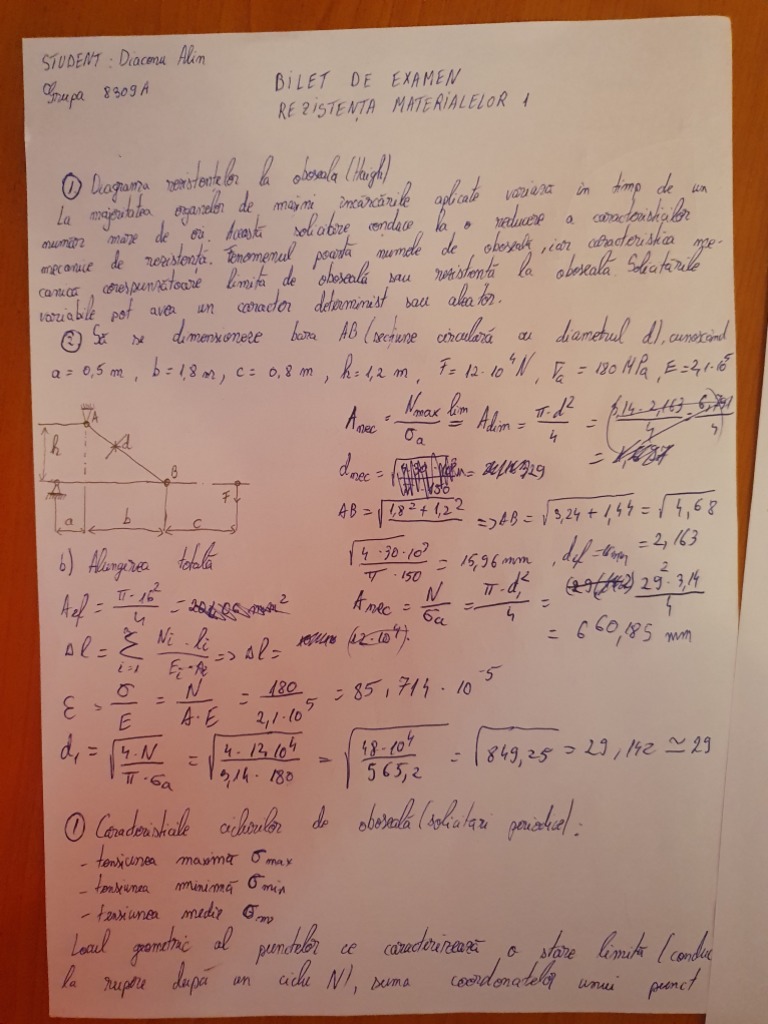 STUDENT : Diaconu Alin
Grupa 8309A
BILET DE EXAMEN
REZISTENȚA MATERIALELOR 1
① Diagrama rezistentelor la oboseala (Haigh)
La majoritatea organelor de mașini încărcările aplicate variază in timp de un
numar mare de ori. Această solicitare conduce la o reducere a caracteristicilor
mecanice de rezistență. Fenomenul poartă numele de oboseală, iar caracteristica me-
canică corespunzătoare limită de oboseală sau rezistență la oboseală. Solicitările
variabile pot avea un caracter determinist sau aleator.
② Să se dimensioneze bara AB (secțiune circulară cu diametrul d), cunoscând
a = 0,5 m, b = 1,8 m, c = 0,8 m, h = 1,2 m, F = 12·10⁴ N, σa = 180 MPa, E = 2,1·10⁵
A
h
d
B
F
a b c
Anec = Nmax/σa = Adim = π·d²/4
dnec =
AB = √(1,8² + 1,2²) => AB = √(3,24 + 1,44) = √4,68
= 2,163
√(4·30·10³/π·150) = 15,96 mm, def =
Anec = N/σa = π·d₁²/4 = 29²·3,14/4
= 660,185 mm
b) Alungirea totală
Aef = π·16²/4 =
Δl = Σ i=1 Ni·li/Ei·Ai => Δl = (12·10⁴).
ε = σ/E = N/A·E = 180/2,1·10⁵ = 85,714·10⁻⁵
d₁ = √(4·N/π·σa) = √(4·12·10⁴/3,14·180) = √(48·10⁴/565,2) = √849,25 = 29,142 ≃ 29
① Caracteristicile ciclurilor de oboseală (solicitari periodice):
- tensiunea maximă σmax
- tensiunea minimă σmin
- tensiunea medie σm
Locul geometric al punctelor ce caracterizează o stare limită (conduc
la rupere după un ciclu N), suma coordonatelor unui punct